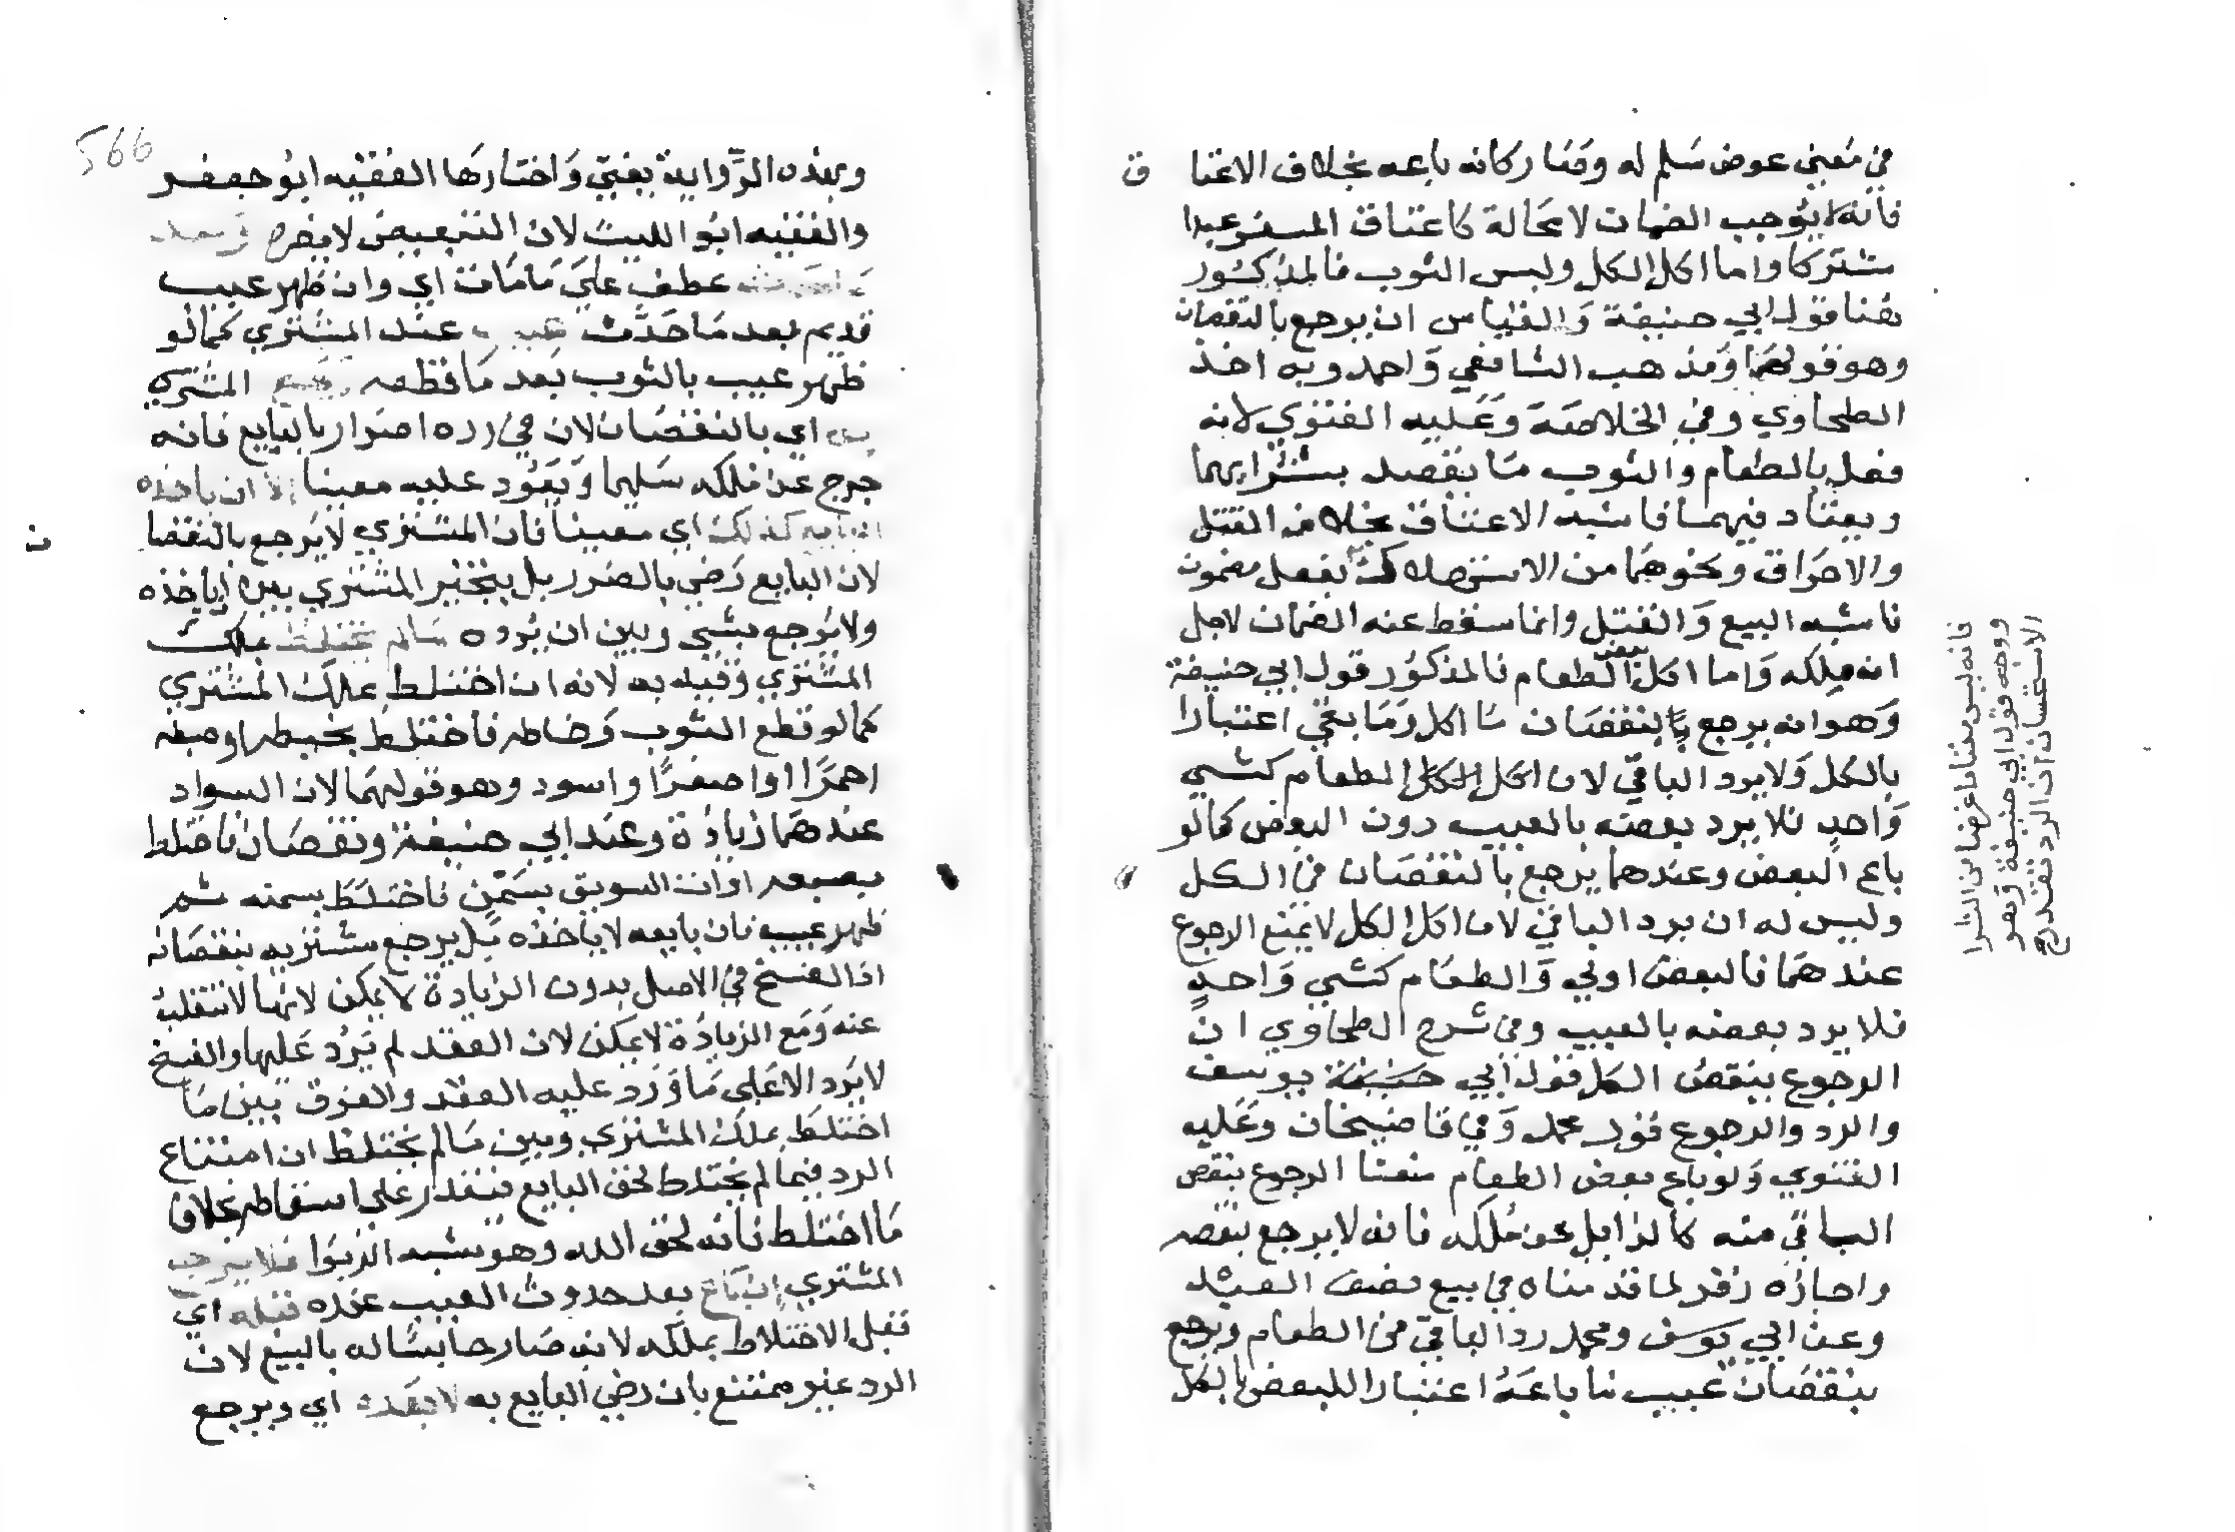 في معنى عوض سلم له وصار كانه باعه بخلاف الاعتا ق
فانه لا يوجب الضمان لا محالة كاعتاق المعسر عبدا
مشتركا واما اكل الكل ولبس الثوب فالمذكور
هنا قول ابي حنيفة والقياس ان يرجع بالنقصان
وهو قولهما ومذهب الشافعي واحمد وبه اخذ
الطحاوي وفي الخلاصة وعليه الفتوي لانه
فعل بالطعام والثوب ما يقصد بشرايهما
ويعتاد فيهما فاشبه الاعتاق بخلاف القتل
والاحراق ونحوهما من الاستهلاك بفعل مضمون
فاشبه البيع والقتل وانما سقط عنه الضمان لاجل
انه ملكه واما اكل بعض الطعام فالمذكور قول ابي حنيفة
وهو انه يرجع بالنقصان ما اكل وما بقي اعتبارا
بالكل ولا يرد الباقي لان اكل الكل الطعام كشي
واحد فلا يرد بعضه بالعيب دون البعض كما لو
باع البعض وعندهما يرجع بالنقصان في الكل
وليس له ان يرد الباقي لان اكل الكل لا يمنع الرجوع
عندهما فالبعض اولي والطعام كشي واحد
فلا يرد بعضه بالعيب وفي شرح الطحاوي ان
الرجوع بنقص الكل قول ابي يوسف
والرد والرجوع قول محمد وفي قاضيخان وعليه
الفتوي ولو باع بعض الطعام منعنا الرجوع بنقص
الباقي منه كالزايل عن ملكه فانه لا يرجع بنقصه
واجازه زفر لما قدمناه في بيع نصف العبد
وعن ابي يوسف ومحمد رد الباقي من الطعام ويرجع
بنقصان عيب ما باعه اعتبارا للبعض بالكل
فانه ليس معتادا غرضا من الشرا
ووجه قول ابي حنيفة وهو
الاستحسان ان الرد تعذر
566
وبهذه الرواية يفتي واختارها الفقيه ابو جعفر
والفقيه ابو الليث لان التبعيض لا يضره
عطف علي ما مات اي وان ظهر عيب
قديم بعد ما حدث عيب عند المشتري كما لو
ظهر عيب بالثوب بعد ما قطعه المشتري
اي بالنقصان لان في رده اضرار بالبايع فانه
خرج عن ملكه سليما ويعود عليه معيبا الا ان ياخذه
البايع كذلك اي معيبا فان المشتري لا يرجع بالنقصا ن
لان البايع رضي بالضرر بل يتخير المشتري بين ان ياخذه
ولا يرجع بشي وبين ان يرده ما لم يختلط بملك
المشتري وقيد به لانه ان اختلط بملك المشتري
كما لو قطع الثوب وخاطه فاختلط بخيطه او صبغه
احمرا او اصفرا واسود وهو قولهما لان السواد
عندهما زيادة وعند ابي حنيفة ونقصان فاختلط
بصبغه او لت السويق بسمن فاختلط بسمنه ثم
ظهر عيب فان بايعه لا ياخذه بل يرجع مشتريه بنقصانه
اذ الفسخ في الاصل بدون الزيادة لا يمكن لانها لا تنفك
عنه ومع الزيادة لا يمكن لان العقد لم يرد عليها والفسخ
لا يرد الا علي ما ورد عليه العقد والفرق بين ما
اختلط بملك المشتري وبين ما لم يختلط ان امتناع
الرد فيما لم يختلط لحق البايع فيقدر علي اسقاطه بخلاف
ما اختلط فانه لحق الله وهو شبه الربوا فلا يرجع
المشتري ان باع بعد حدوث العيب عنده قبله اي
قبل الاختلاط بملكه لانه صار حابسا له بالبيع لان
الرد غير ممتنع بان رضي البايع به لا بعده اي ويرجع